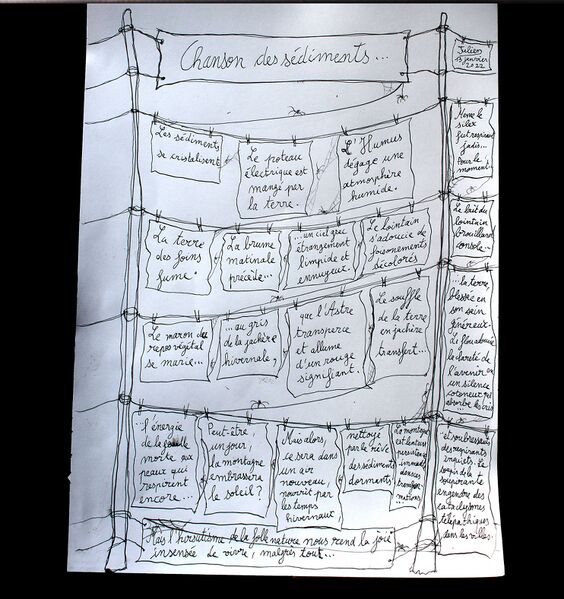 Chanson des sédiments...
Julien
13 janvier
2022
Les sédiments
se cristalisent
Le poteau
électrique est
mangé par
la terre.
L'Humus
dégage une
atmosphère
humide.
Même le
silex
fut respirant
jadis...
Pour le
moment
La terre
des foins
fume.
La brume
matinale
précède...
...un ciel grec
étrangement
limpide et
ennuyeux.
Le lointain
s'adoucie de
foisonnements
décolorés
Le lait du
lointain
brouillard
console...
Le maron du
repos végétal
se marie...
...au gris
de la jachère
hivernale,
que l'Astre
transperce
et allume
d'un rouge
signifiant.
Le souffle
de la terre
en jachère
transfert...
...la terre,
blessée en
son sein
généreux
la dureté de
l'avenir en
un silence
absorbe les cris
...l'énergie
de la feuille
morte aux
peaux qui
respirent
encore...
Peut-être,
un jour,
la montagne
embrassera
le soleil?
Mais alors,
ce sera dans
un air
nouveau,
nourrit par
les temps
hivernaux
nettoyé
par le rêve
des sédiments
dormants.
La montagne
et soubressauts
des respirants
engendre des
cataclysmes
télépathiques
dans les villes.
Mais l'hirsutisme de la folle nature nous rend la joie
insensée de vivre, malgrés tout...